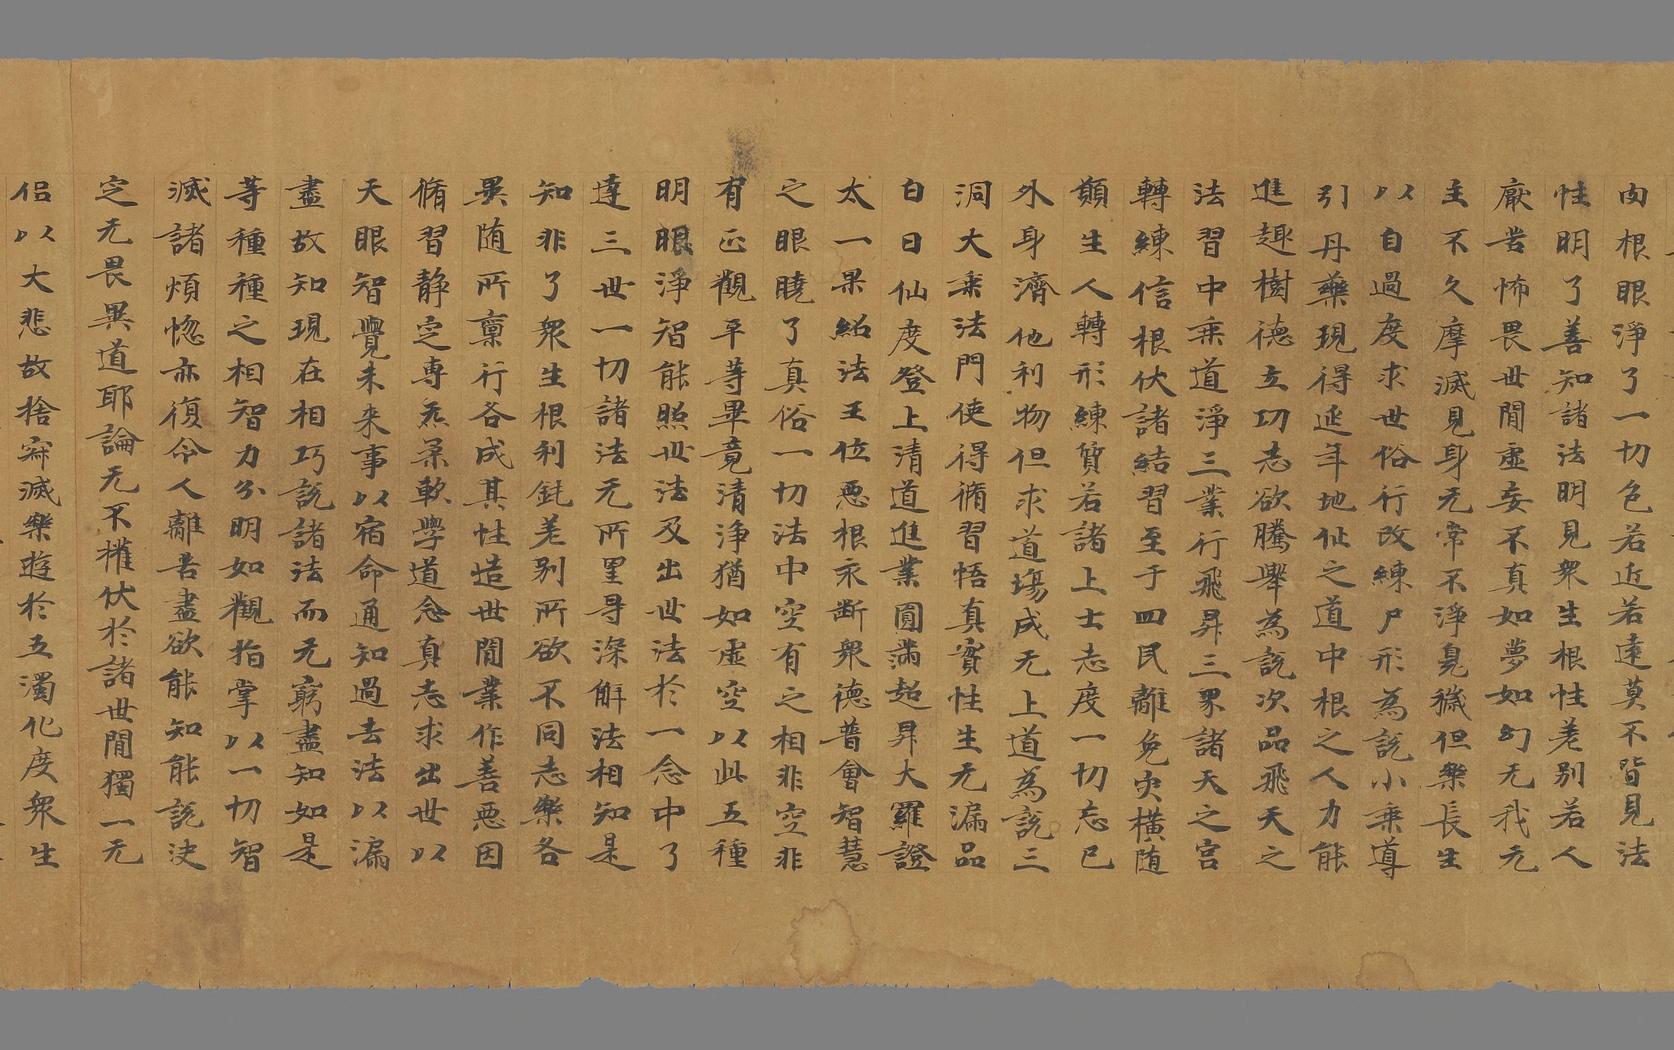 肉根眼淨了一切色若近若遠莫不皆見法
性明了善知諸法明見衆生根性差別若人
厭苦怖畏世間虛妄不真如夢如幻无我无
主不久摩滅見身无常不淨臭穢但樂長生
以自過度求世俗行改練尸形為說小乘導
引丹藥現得延年地仙之道中根之人力能
進趣樹德立功志欲騰舉為說次品飛天之
法習中乘道淨三業行飛昇三界諸天之宮
轉練信根伏諸結習至于四民離免灾橫随
願生人轉形練質若諸上士志度一切忘己
外身濟他利物但求道塲成无上道為說三
洞大乘法門使得脩習悟真實性生无漏品
白日仙度登上清道進業圓滿超昇大羅證
太一果紹法王位惡根永斷衆德普會智慧
之眼曉了真俗一切法中空有之相非空非
有正觀平等畢竟清淨猶如虛空以此五種
明眼淨智能照世法及出世法於一念中了
達三世一切諸法无所罣导深解法相知是
知非了衆生根利鈍差別所欲不同志樂各
異随所稟行各成其性造世間業作善惡因
脩習靜定專炁柔軟學道念真志求出世以
天眼智覺未來事以宿命通知過去法以漏
盡故知現在相巧說諸法而无窮盡知如是
等種種之相智力分明如觀指掌以一切智
滅諸煩惚亦復令人離苦盡欲能知能說決
定无畏異道耶論无不摧伏於諸世間獨一无
侣以大悲故捨寂滅樂遊於五濁化度衆生